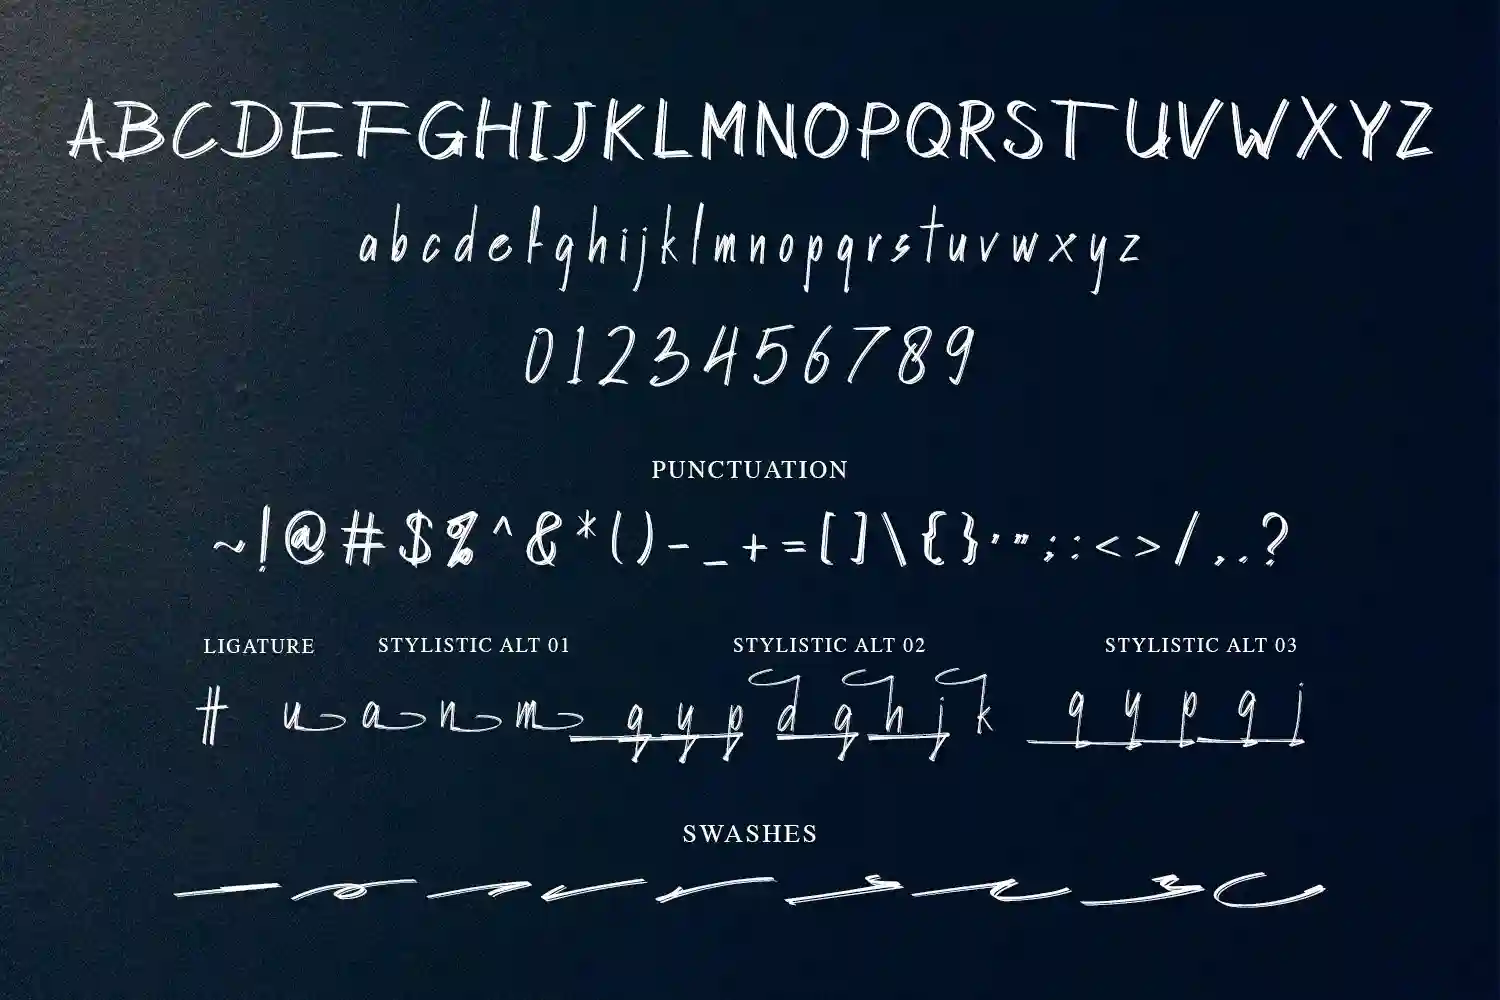 ABCDEFGHIJKLMNOPQRSTUVWXYZ
abcdefghijklmnopqrstuvwxyz
0123456789
PUNCTUATION
~!@#$%^&*()-_+=[]\{}'";:<>/,.?
LIGATURE STYLISTIC ALT 01 STYLISTIC ALT 02 STYLISTIC ALT 03
tt u a n m g y p d g h j k q y p g j
SWASHES